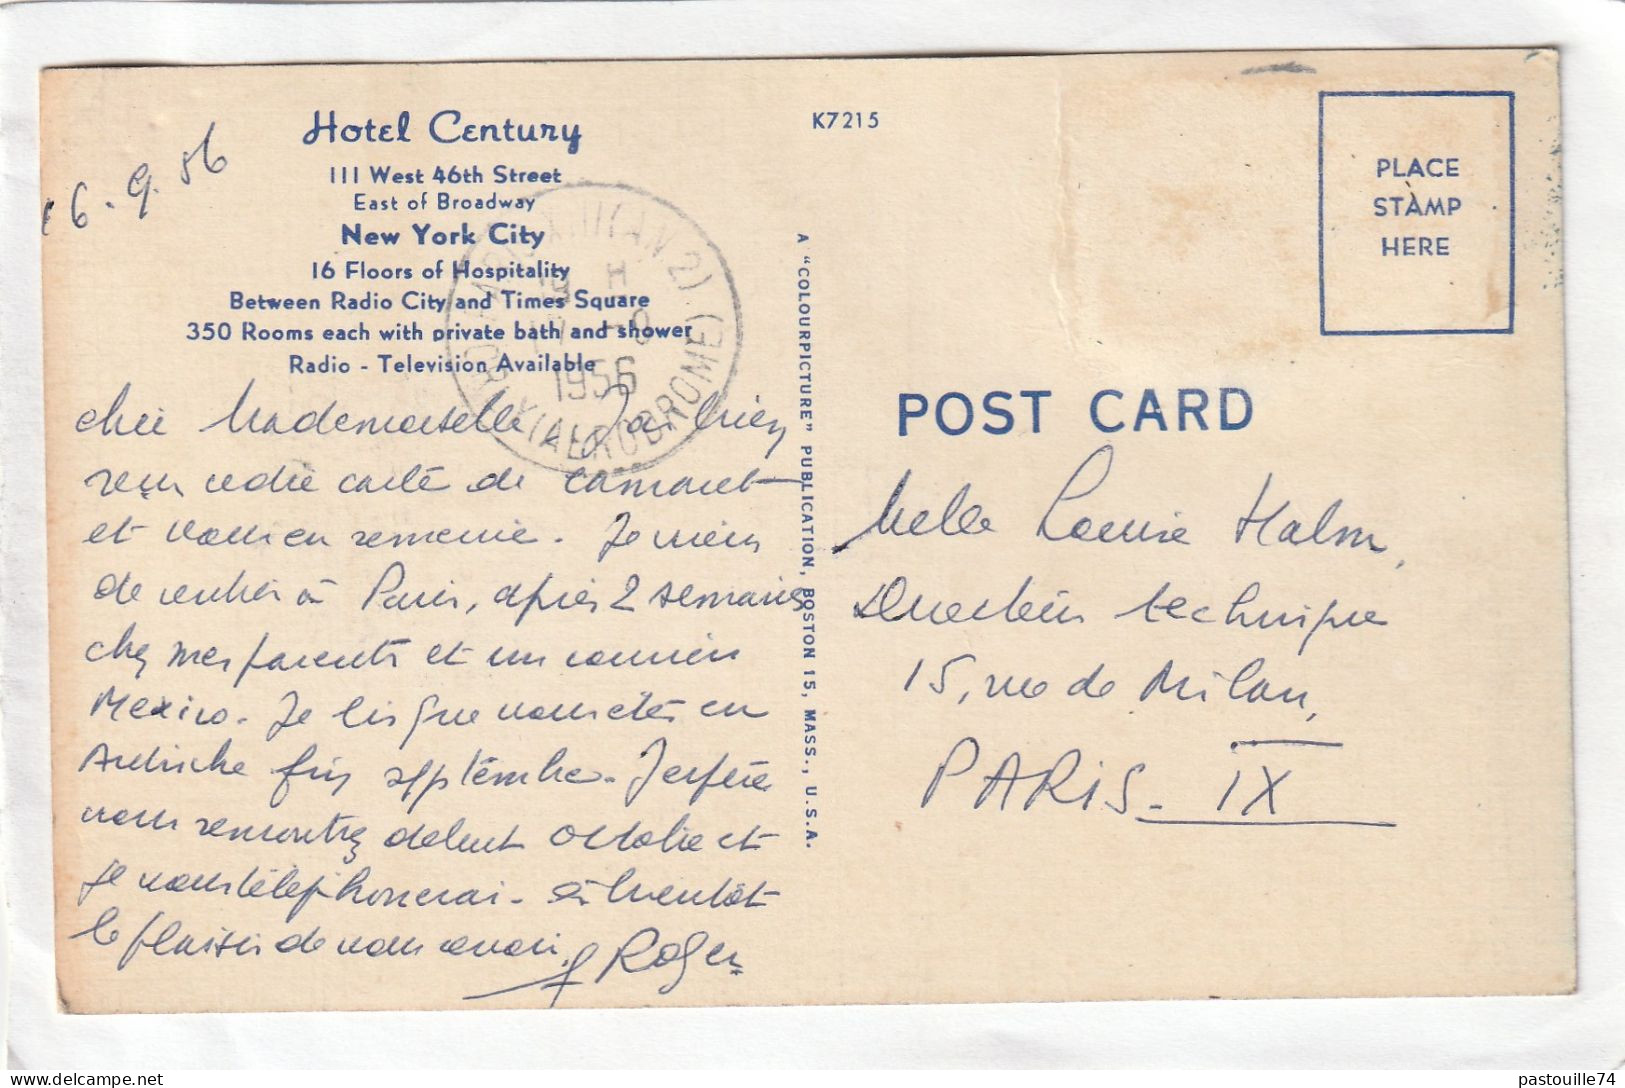 Hotel Century
111 West 46th Street
East of Broadway
New York City
16 Floors of Hospitality
Between Radio City and Times Square
350 Rooms each with private bath and shower
Radio - Television Available
16.9.56
K7215
PLACE
STAMP
HERE
19 H
17 -9
1956
(AERODROME)
A "COLOURPICTURE" PUBLICATION, BOSTON 15, MASS., U.S.A.
POST CARD
chère Mademoiselle, J'ai bien
reçu votre carte de Camaret
et vous en remercie. Je viens
de rentrer à Paris, après 2 semaines
chez mes parents et un courrier
Mexico. Je lis que vous êtes en
Autriche fin septembre. J'espère
vous rencontrer début octobre et
je vous téléphonerai. à bientôt
le plaisir de vous revoir.
Roger
Melle Louise Halm,
Directrice technique
15, rue de Milan,
PARIS - IX
pastouille74